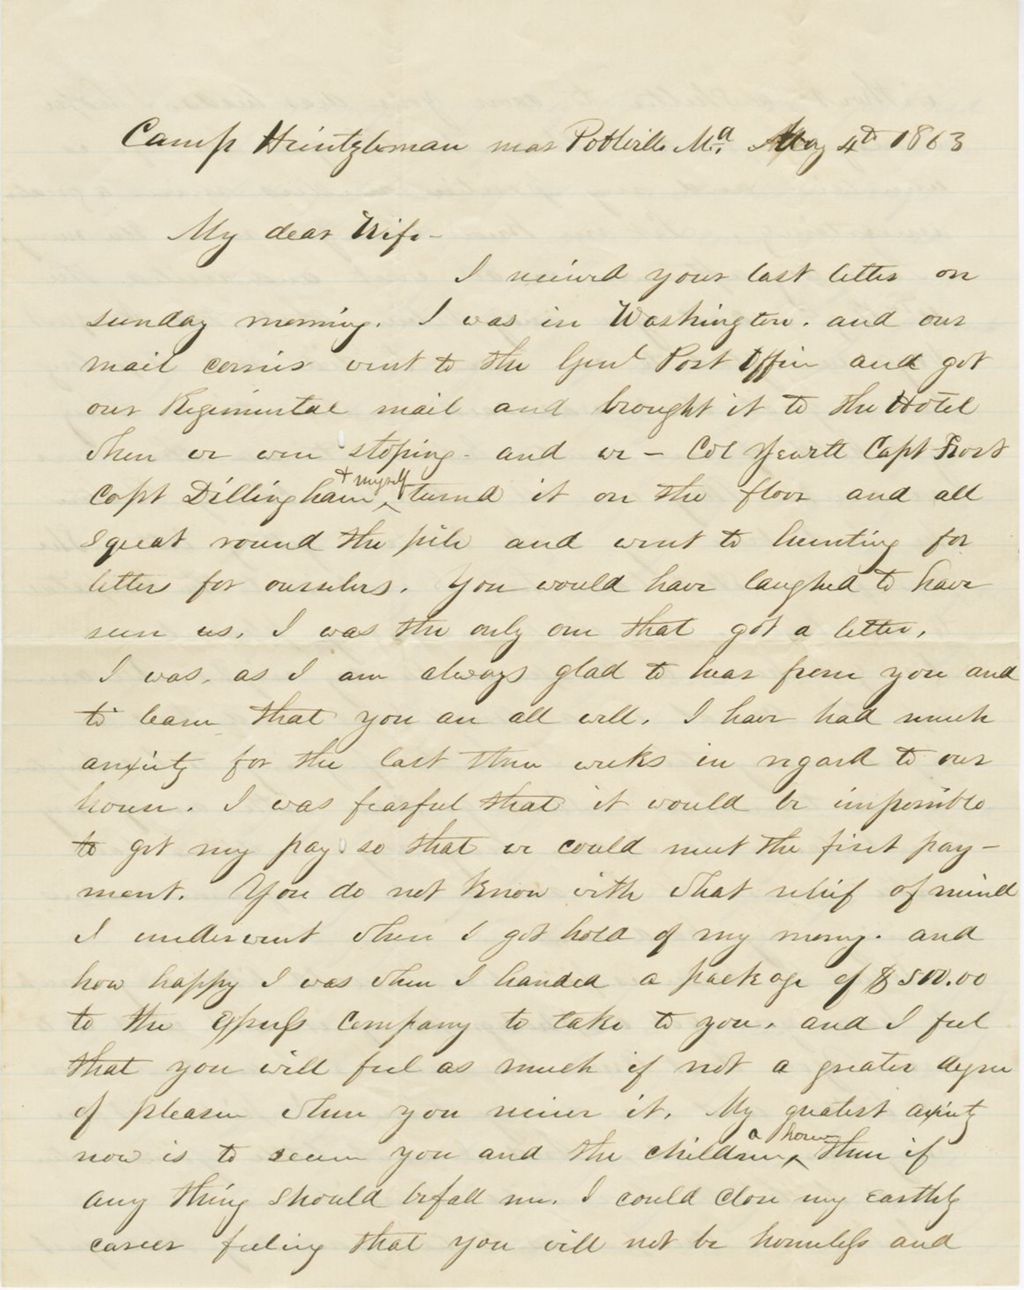 Camp Heintzleman near Poolsville Md. May 4th 1863
My dear Wife-
I recieved your last letter on
sunday morning. I was in Washington. and our
mail carrier went to the Genl Post Office and got
our Regimental mail and brought it to the Hotel
when we were stoping- and we - Col Capt Frost
Capt Dillingham + myself turned it on the floor and all
squat round the pile and went to hunting for
letters for ourselves. You would have laughed to have
seen us. I was the only one that got a letter.
I was, as I am always glad to hear from you and
to learn that you are all well. I have had much
anxiety for the last three weeks in regard to our
house. I was fearful that it would be impossible
to get my pay so that we could meet the first pay-
ment. You do not know with what relief of mind
I underwent when I got hold of my money. and
how happy I was when I handed a package of $500.00
to the Express Company to take to you, and I feel
that you will feel as much if not a greater degree
of pleasure when you recieve it. My greatest axiety
now is to secure you and the children a home then if
any thing should befall me. I could close my earthly
career feeling that you will not be homeless and